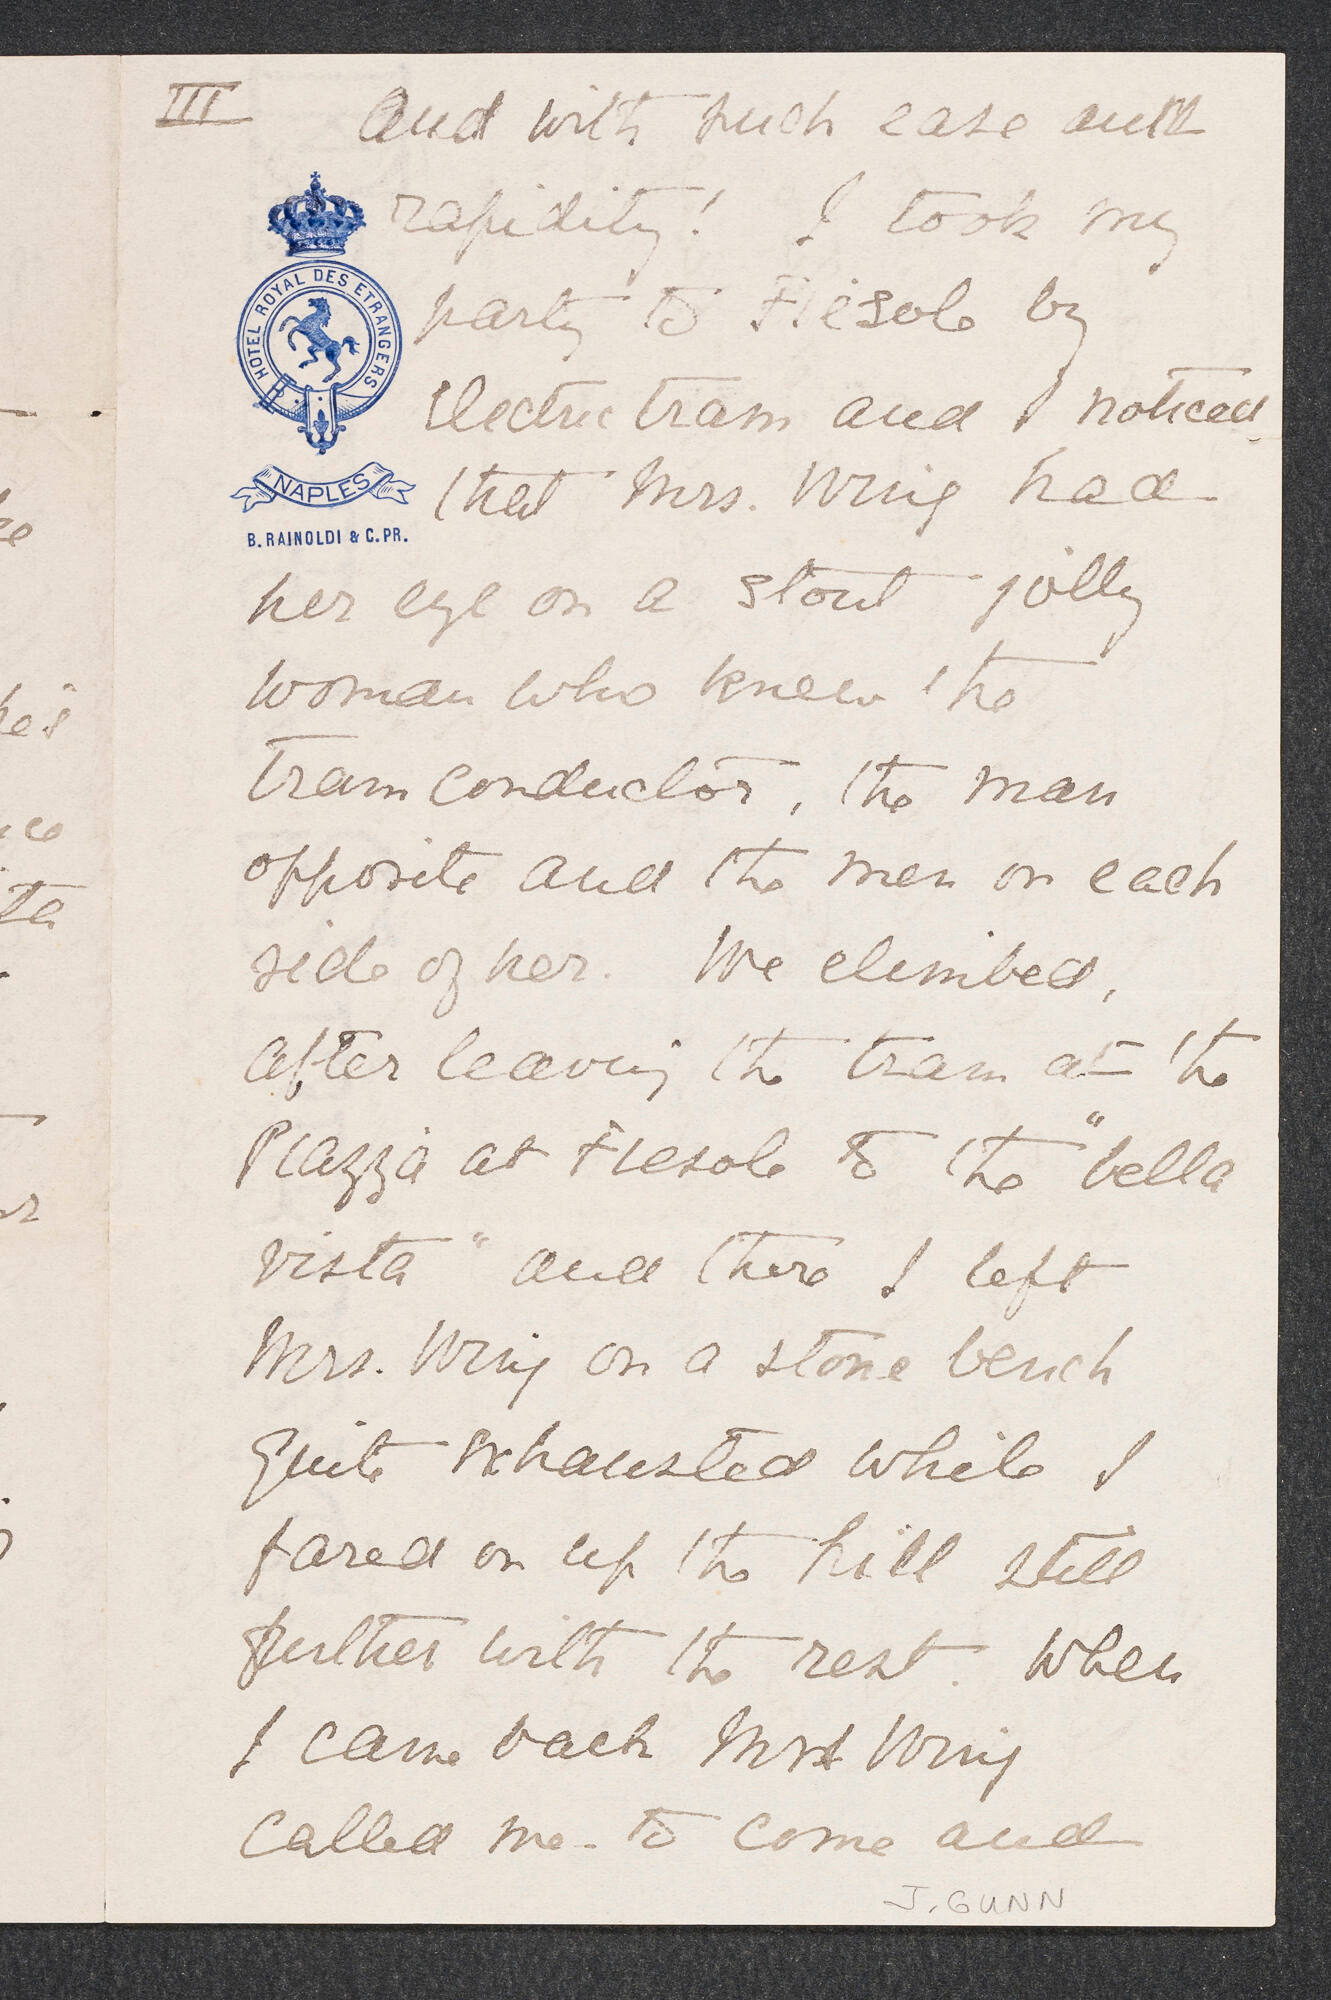 III
and with such ease and
rapidity! I took my
party to Fiesole by
Electric tram and I noticed
that Mrs. Wing had
her eye on a stout jolly
woman who knew the
tram conductor, the man
opposite and the men on each
side of her. We climbed,
after leaving the tram at the
Piazza at Fiesole to the "bella
vista" and there I left
Mrs. Wing on a stone bench
quite exhausted while I
fared on up the hill still
further with the rest. When
I came back Mrs Wing
called me to come and
HOTEL ROYAL DES ETRANGERS
NAPLES
B. RAINOLDI & C. PR.
J. GUNN